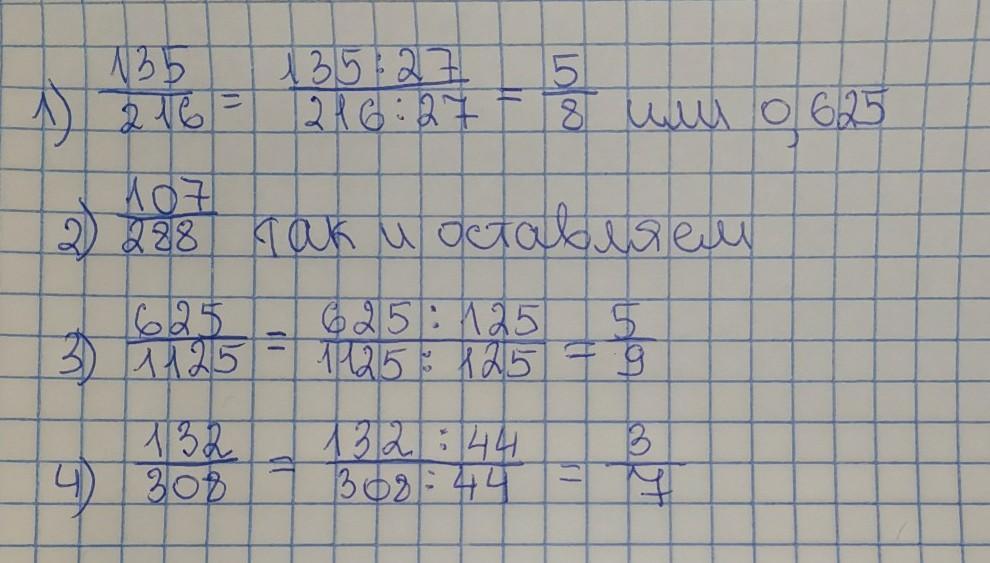 1) 135/216 = 135:27/216:27 = 5/8 или 0,625
2) 107/288 так и оставляем
3) 625/1125 = 625 : 125/1125 : 125 = 5/9
4) 132/308 = 132 : 44/308 : 44 = 3/7